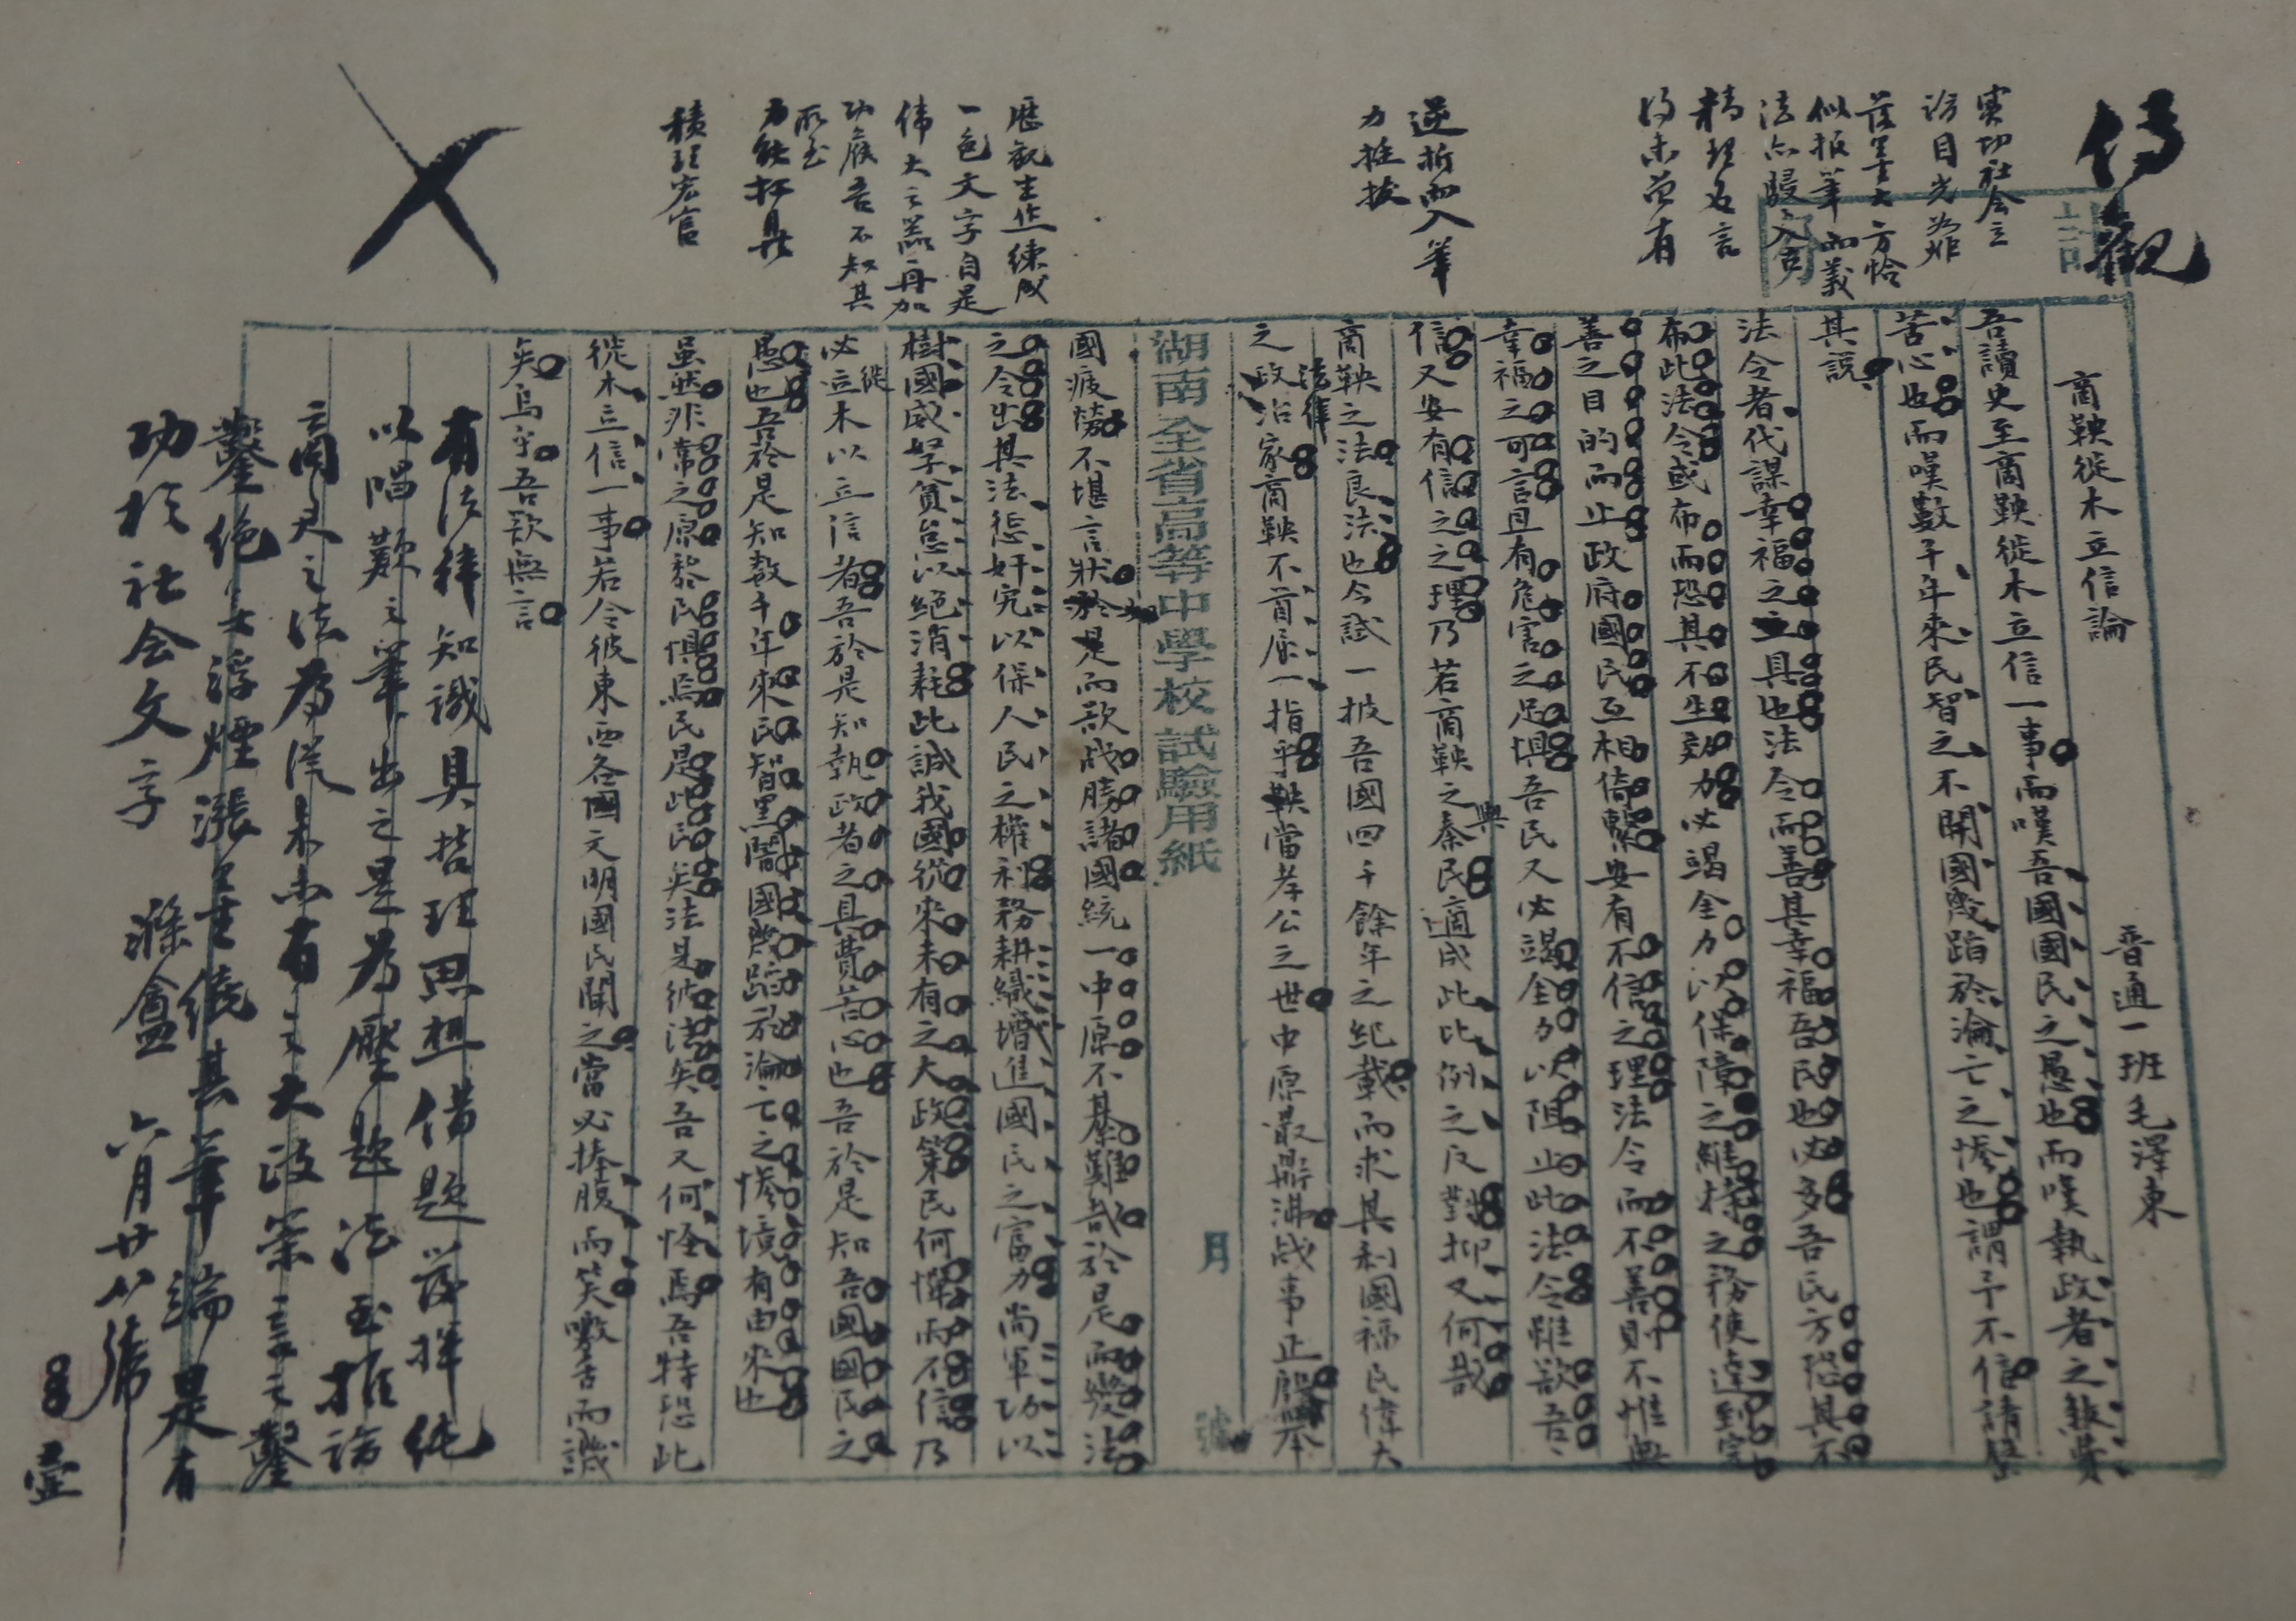 傳觀
實切社會立
論目光如炬
落墨大方恰
似報筆而義
法亦駸入古
精理名言
得未曾有
逆折而入筆
力挺拔
歷觀生作練成
一色文字自是
偉大之器再加
功候吾不知其
所至
力能扛鼎
積理宏富
商鞅徙木立信論
普通一班毛澤東
吾讀史至商鞅徙木立信一事而嘆吾國國民之愚也而嘆執政者之煞費
苦心也而嘆數千年來民智之不開國幾蹈於淪亡之慘也謂予不信請罄
其說
法令者代謀幸福之具也法令而善其幸福吾民也必多吾民方恐其不
布此法令或布而恐其不生效力必竭全力以保障之維持之務使達到完
善之目的而止政府國民互相倚繫安有不信之理法令而不善則不惟無
幸福之可言且有危害之足惧吾民又必竭全力以阻止此法令雖欲吾
信又安有信之之理乃若商鞅之與秦民適成此比例之反對抑又何哉
商鞅之法良法也今試一披吾國四千餘年之紀載而求其利國福民偉大
之政治家商鞅不首屈一指乎鞅當孝公之世中原鼎沸战事正殷舉
國疲勞不堪言狀於是而欲战勝諸國統一中原不綦難哉於是而變法
之令出其法懲奸宄以保人民之權利務耕織以增進國民之富力尚軍功以
樹國威孥貧怠以絕消耗此誠我國從來未有之大政策民何憚而不信乃
必徙木以立信者吾於是知執政者之具費苦心也吾於是知吾國國民之
愚也吾於是知數千年來民智黑闇國幾蹈於淪亡之慘境有由來也
虽然非常之原黎民惧焉民是此民矣法是彼法矣吾又何怪焉吾特恐此
徙木立信一事若令彼東西各國文明國民聞之當必捧腹而笑噭舌而譏
矣烏乎吾欲無言
湖南全省高等中學校試驗用紙
月
號
有法律知識具哲理思想借題發揮純
以唱歎之筆出之是為壓題法至推論
商君之法為從來未有之大政策言之鑿
鑿絕無浮煙漲墨繞其筆端是有
功於社會文字
滌盦 六月廿八號